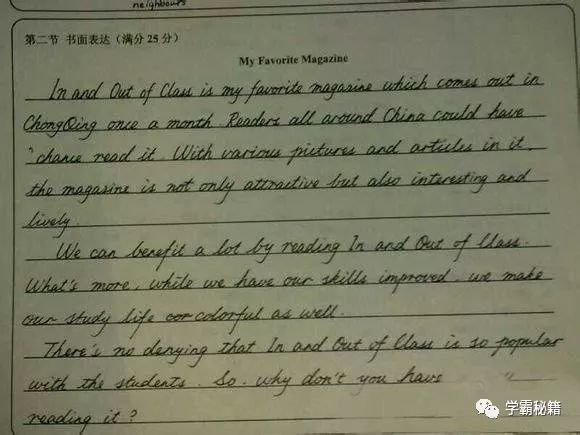 neighbours
第二节 书面表达（满分 25 分）
My Favorite Magazine
In and Out of Class is my favorite magazine which comes out in
ChongQing once a month. Readers all around China could have
chance read it. With various pictures and articles in it,
the magazine is not only attractive but also interesting and
lively.
We can benefit a lot by reading In and Out of Class.
What's more, while we have our skills improved, we make
our study life colorful as well.
There's no denying that In and Out of Class is so popular
with the students. So, why don't you have
reading it?
学霸秘籍